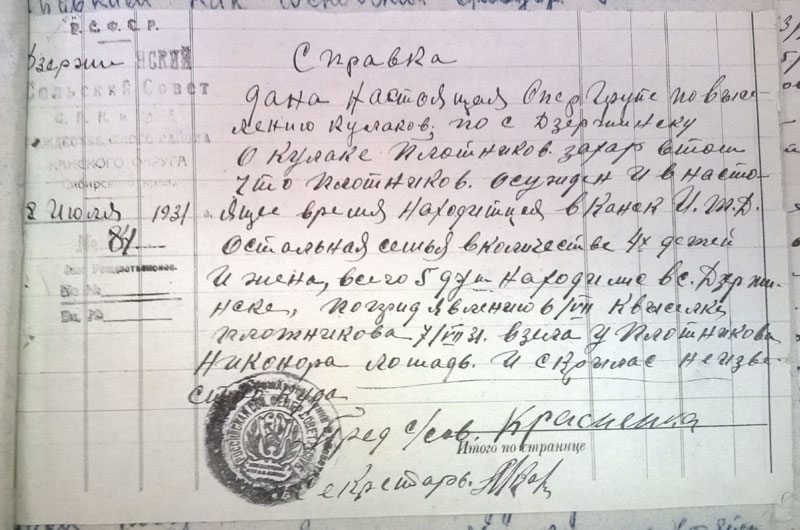 Р. С. Ф. С. Р.
Дзержинский
Сельский Совет
С. Р. К. и Кр. Д.
РОЖДЕСТВЕНСКОГО РАЙОНА
КАНСКОГО ОКРУГА
Сибирского края
8 Июля 1931
№ 84
Справка
дана настоящая Опер Групе по высе-
лению кулаков, по с Дзержинску
о кулаке Плотников. захар втом
что Плотников. осужден и в насто-
ящее время находитцея в Канск И.Т.Д.
остальная семья в количестве 4х детей
и жена, всего 5 душ находилис в с. Дзержи-
нске, 6/VII к выселке
Плотникова 7/VII 31. взела у Плотникова
Никонора лошадь. и скрылас неизве-
стно куда
Пред с/сов. Красненка
Итого по странице
Секретарь.